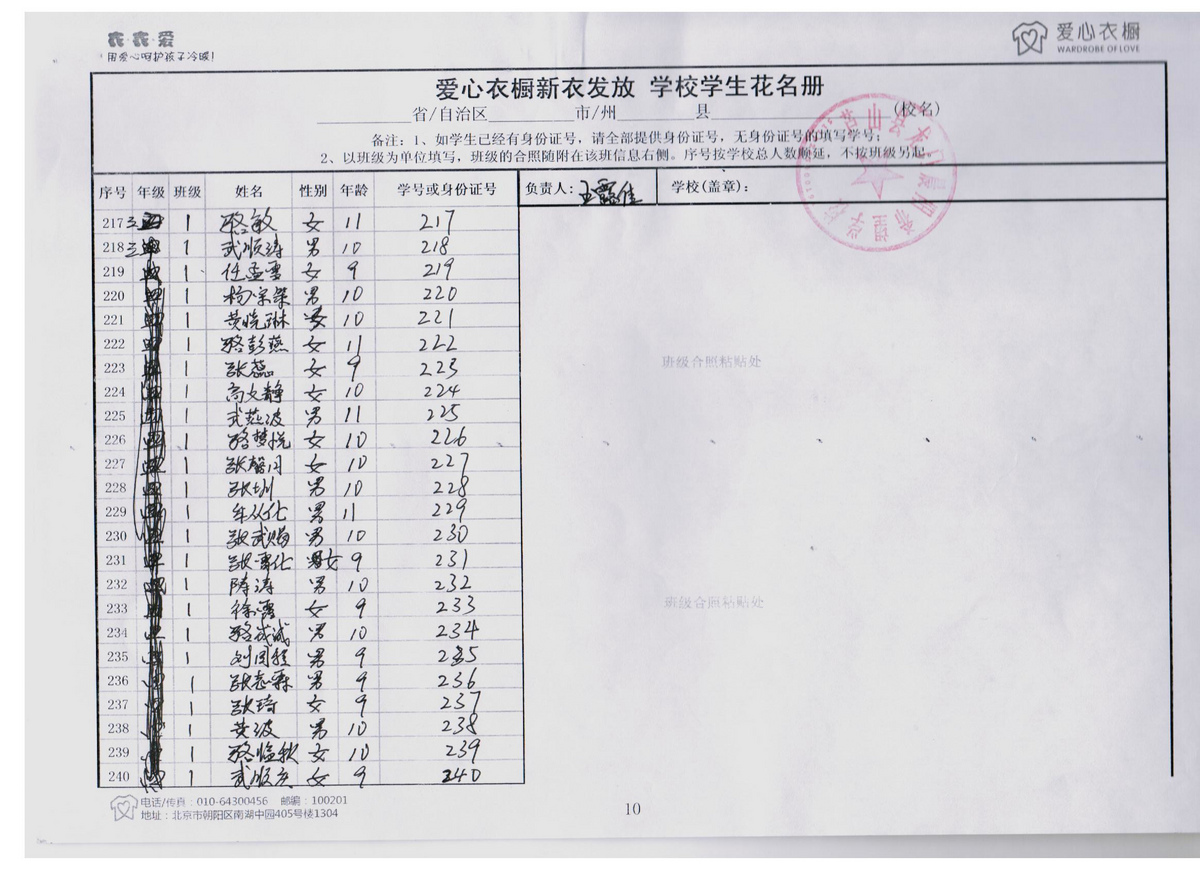 衣·衣·爱
用爱心呵护孩子冷暖!
爱心衣橱
WARDROBE OF LOVE
爱心衣橱新衣发放 学校学生花名册
省/自治区 市/州 县 (校名)
备注:1、如学生已经有身份证号,请全部提供身份证号,无身份证号的填写学号;
2、以班级为单位填写,班级的合照随附在该班信息右侧。序号按学校总人数顺延,不按班级另起。
序号 年级 班级 姓名 性别 年龄 学号或身份证号 负责人: 学校(盖章):
217 三 1 骆敏 女 11 217
218 三 1 武顺涛 男 10 218
219 1 任孟雪 女 9 219
220 1 杨宗荣 男 10 220
221 1 黄晓琳 女 10 221
222 1 骆彭燕 女 11 222
223 1 张蕊 女 9 223
224 1 高文静 女 10 224
225 1 武燕波 男 11 225
226 1 骆梦悦 女 10 226
227 1 张馨月 女 10 227
228 1 张圳 男 10 228
229 1 牟从化 男 11 229
230 1 张武 男 10 230
231 1 张 化 女 9 231
232 1 陈涛 男 10 232
233 1 徐雪 女 9 233
234 1 骆成诚 男 10 234
235 1 刘 程 男 9 235
236 1 张志霖 男 9 236
237 1 张琦 女 9 237
238 1 黄波 男 10 238
239 1 骆临秋 女 10 239
240 1 武顺 女 9 240
班级合照粘贴处
班级合照粘贴处
电话/传真:010-64300456 邮编:100201
地址:北京市朝阳区南湖中园405号楼1304
10